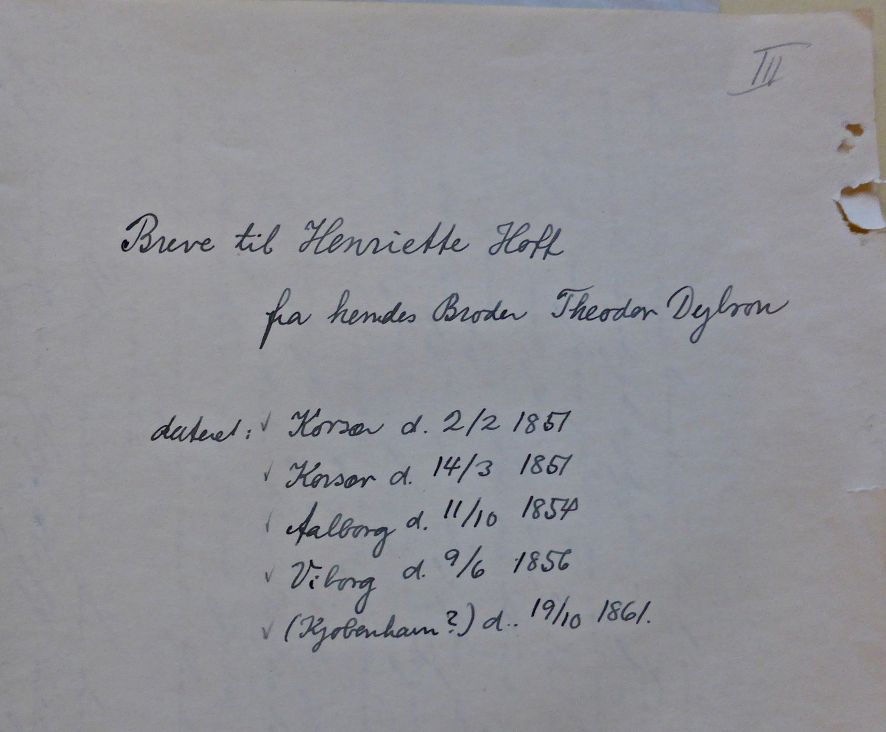 III
Breve til Henriette Hoff
fra hendes Broder Theodor Dylron
dateret: ✓ Korsør d. 2/2 1851
✓ Korsør d. 14/3 1851
✓ Aalborg d. 11/10 1854
✓ Viborg d. 9/6 1856
✓ (Kjøbenhavn?) d.. 19/10 1861.